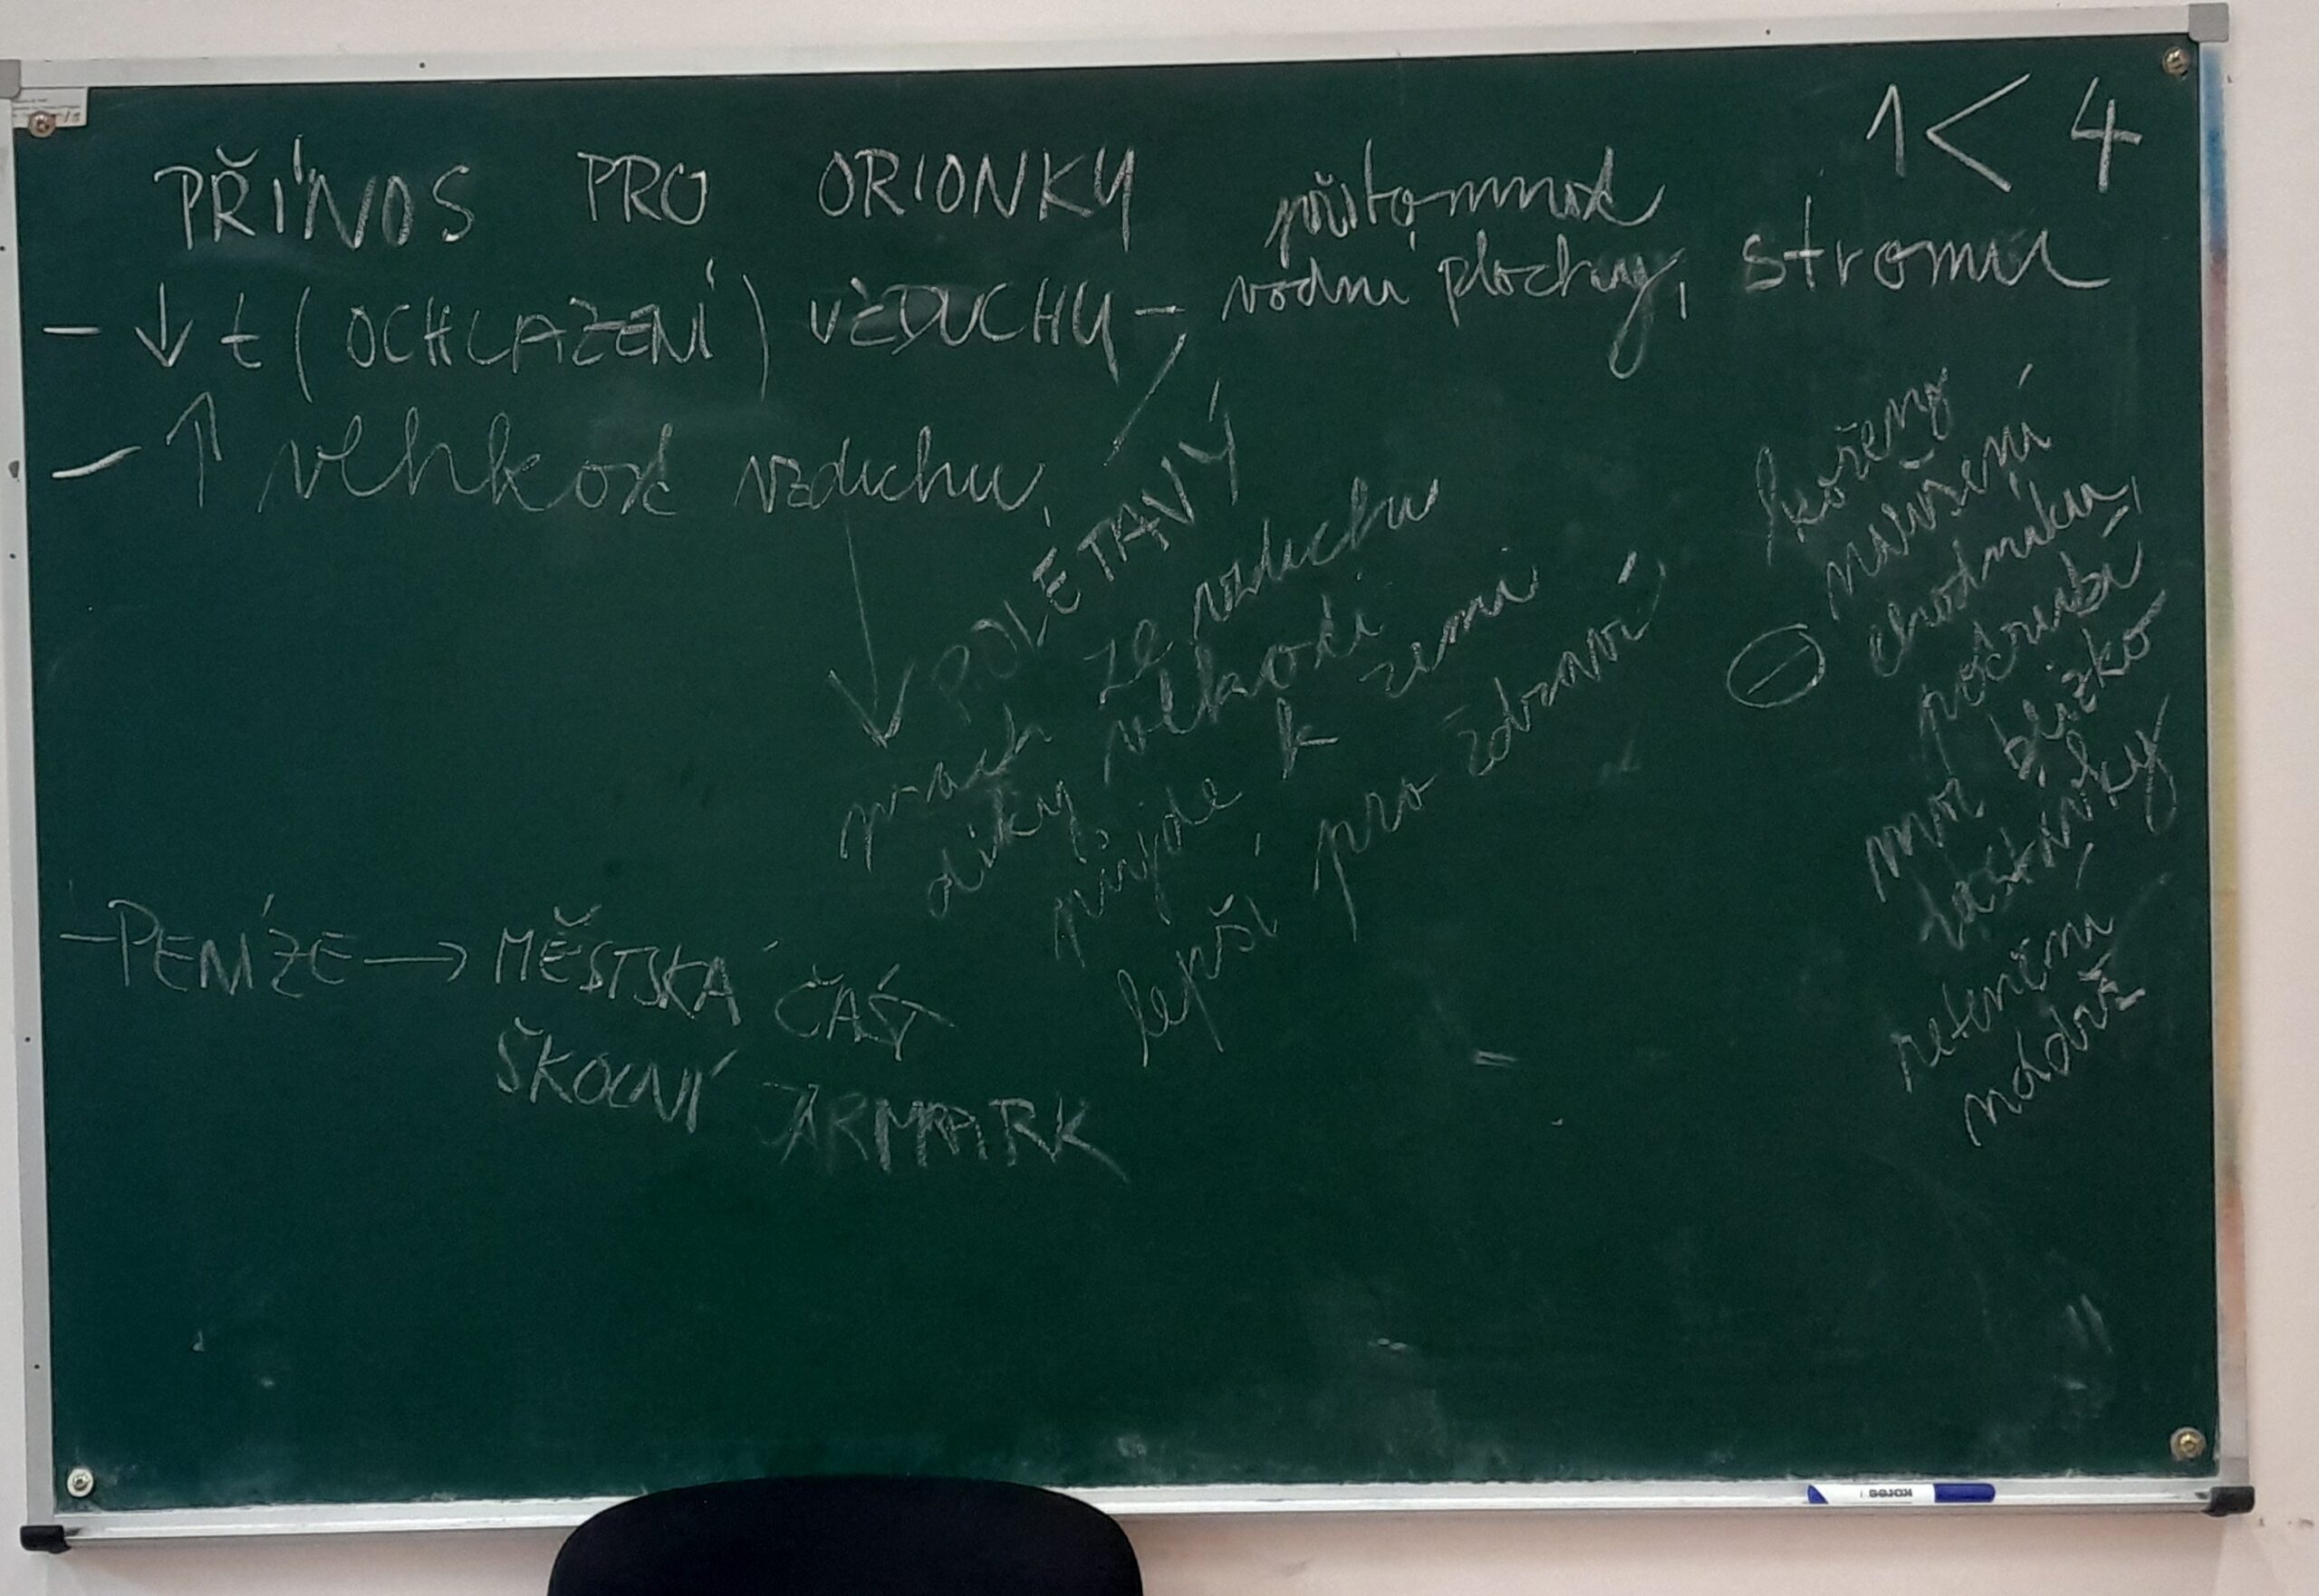 1 < 4
PŘÍNOS PRO ORIONKY
přítomnost
- ↓ t (OCHLAZENÍ) VZDUCHU - vodní plochy, stromu
- ↑ vlhkost vzduchu
POLÉTAVÝ
prach ze vzduchu
díky vlhkosti
přijde k zemi
lepší pro zdraví
⊖
kořeny
narušení
chodníku,
potrubí
moc blízko
zástavky
retenční
nádrž
- PENÍZE → MĚSTSKÁ ČÁST
ŠKOLNÍ JARMARK